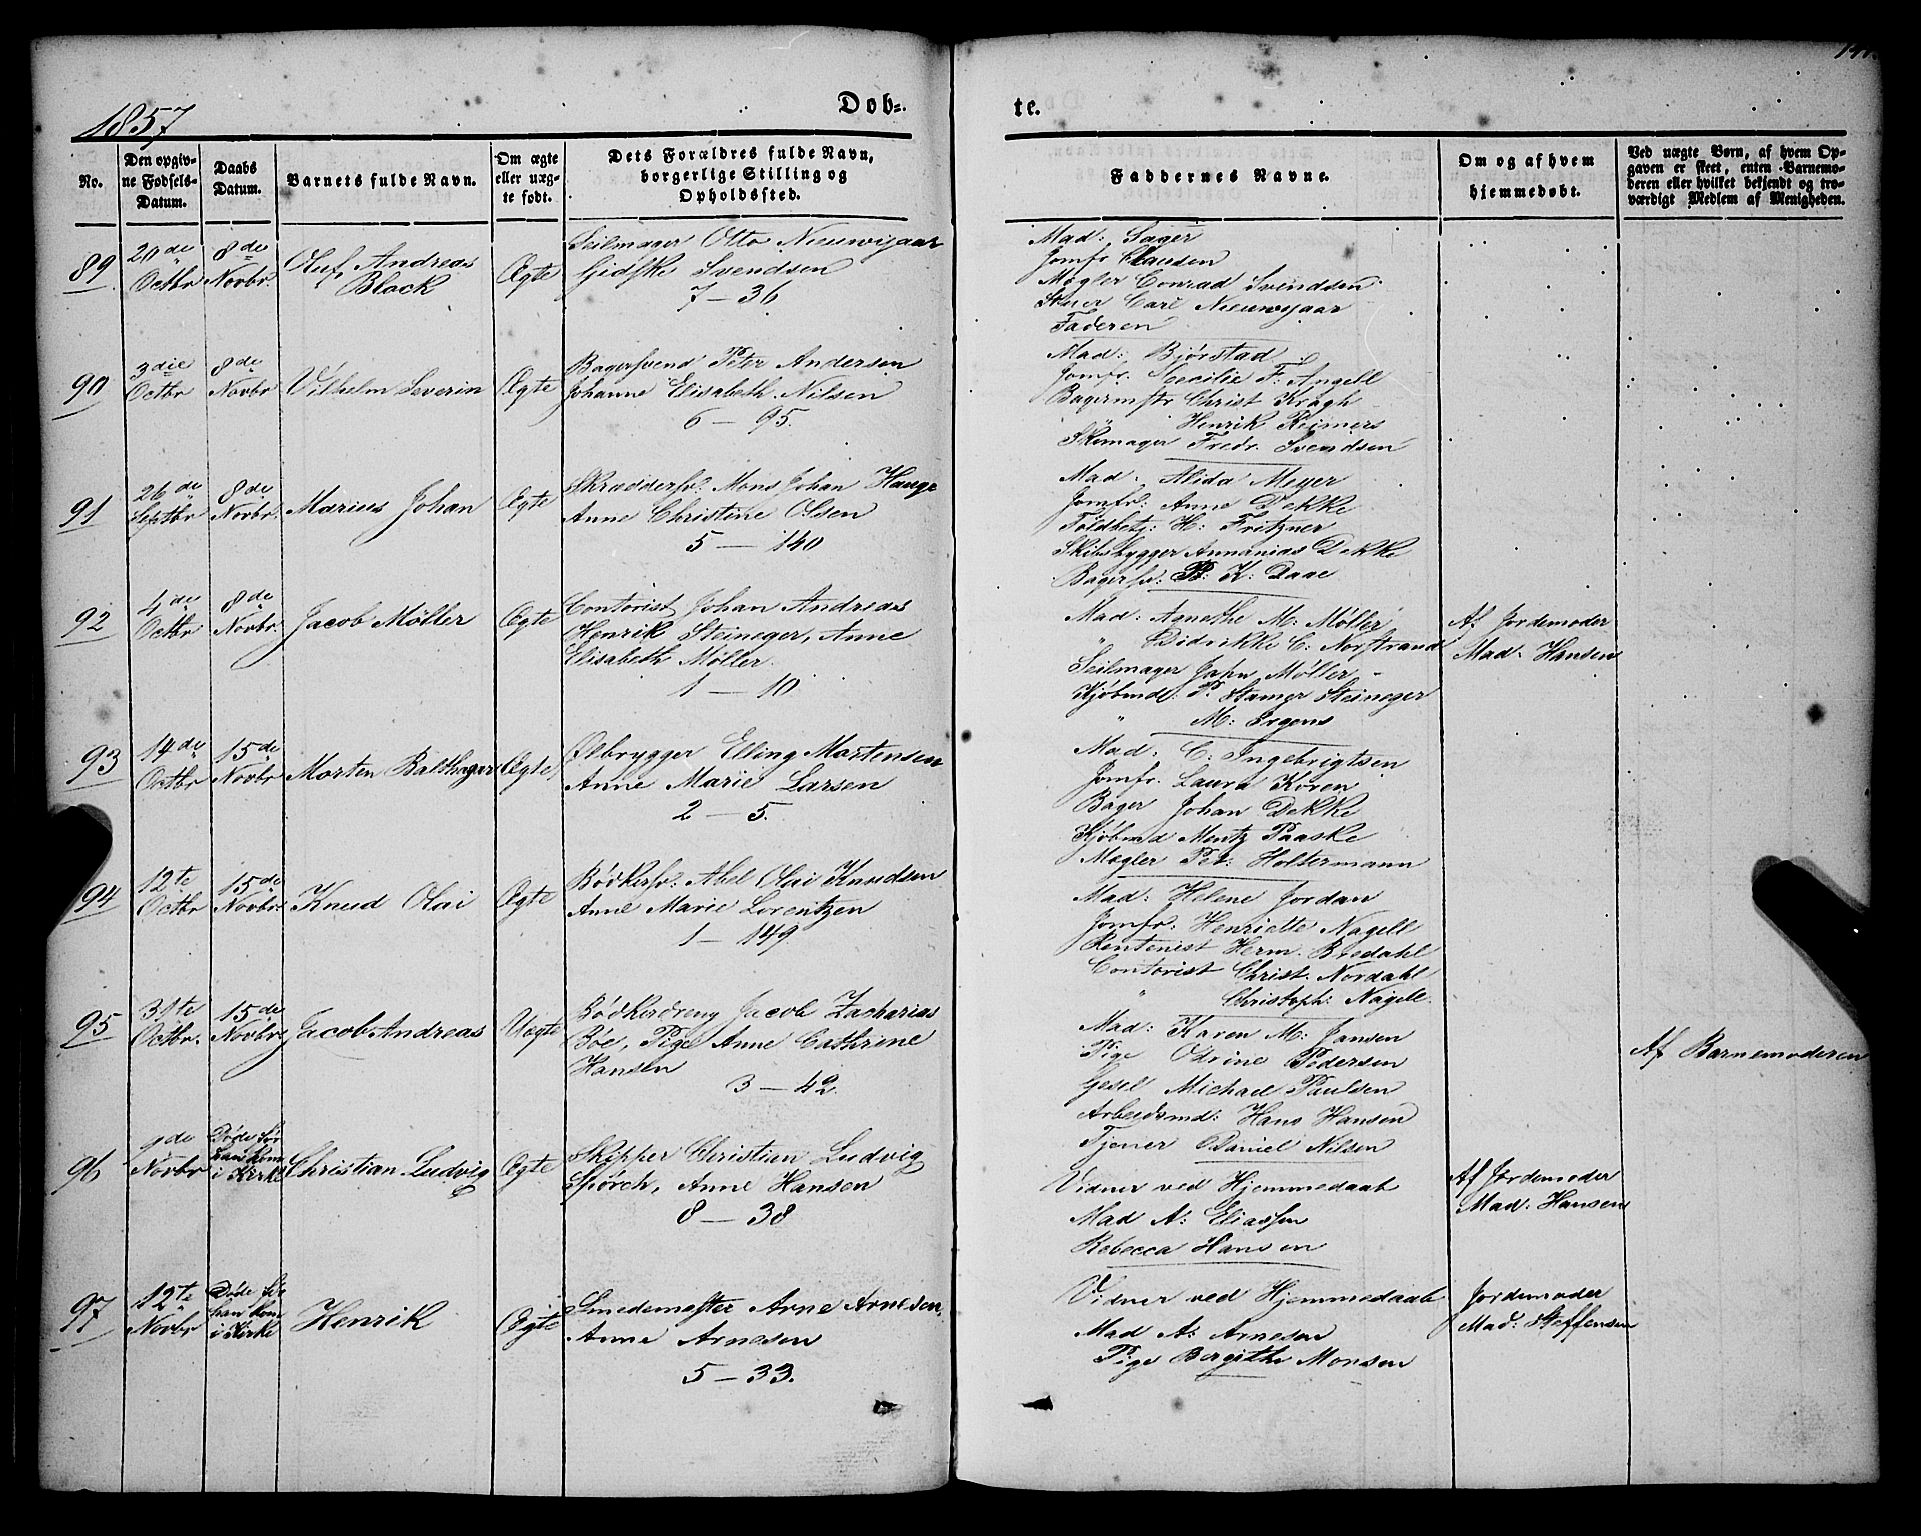 1857
Døb-
te.
No.
Den opgiv-
ne Fødsels-
Datum.
Daabs
Datum.
Barnets fulde Navn.
Om ægte
eller uæg-
te født.
Dets Forældres fulde Navn,
borgerlige Stilling og
Opholdssted.
Faddernes Navne.
Om og af hvem
hjemmedøbt.
Ved uægte Børn, af hvem Op-
gaven er skeet, enten Barnemo-
deren eller hvilket bekjendt og tro-
værdigt Medlem af Menigheden.
89
20de
Octbr
8de
Novbr.
Oluf Andreas
Black
Ægte
Seilmager Otto Nieuwejaar
Gidske Svendsen
7 — 36
Mad: Sager
Jomfr Clausen
Mægler Conrad Svendsen
Carl Nieuwejaar
Faderen
90
3die
Octbr
8de
Novbr
Vilhelm Severin
Ægte
Bagersvend Peter Andersen
Johanne Elisabeth Nilsen
6 — 95.
Mad: Bjørstad
Jomfr. Cecilie F. Angell
Bagermstr Christ Kragh
" Henrik Reimers
Skomager Fredr. Svendsen
91
26de
Septbr
8de
Novbr.
Marius Johan
Ægte
Skræddersv. Mons Johan Hauge
Anne Christine Olsen
5 — 140
Mad: Alida Meyer
Jomfr: Anne Dekke
Toldbetj: H: Fritzner
Skibsbygger Annanias Dekke
Bagersv: P: K: Daae
92
4de
Octbr
8de
Novbr.
Jacob Møller
Ægte
Contorist Johan Andreas
Henrik Steineger, Anne
Elisabeth Møller.
1 — 10
Mad: Agnethe M: Møller
" Didrikke C: Norstrand
Seilmager Møller
Kjøbmd: P. Stamer Steineger
" M: Irgens
Af Jordemoder
Mad: Hansen
93
14de
Octbr
15de
Novbr
Morten Balthazar
Ægte
Ølbrygger Elling Mortensen
Anne Marie Larsen
2 — 5.
Mad: C: Ingebrigtsen
Jomfr. Laura Koren
Bager Johan Dekke
Kjøbmd Mentz Paaske
Mægler Pet: Holtermann
94
12te
Octbr
15de
Novbr.
Knud Olai
Ægte
Bødkersv: Abel Olai Knudsen
Anne Marie Lorentzen
1 — 149
Mad: Helene Jordan
Jomfr: Henriette Nagell
Rentenist Herm. Bredahl
Contorist Christ. Nordahl
" Christoph: Nagell.
95
31te
Octbr.
15de
Novbr
Jacob Andreas
Uægte
Bødkerdreng Jacob Zacharias
Bøe, Pige Anne Cathrine
Hansen
3 — 42.
Mad: Karen M: Jansen
Pige Oline Pedersen
Gesel Michael Paulsen
Arbeidsmd: Hans Hansen
Tjener Daniel Nilsen
Af Barnemoderen
96
9de
Novbr
Døde før
han kom
i Kirke
Christian Ludvig
Ægte
Skipper Christian Ludvig
Spörch, Anne Hansen
8 — 38
Vidner ved Hjemmedaab
Mad A: Eliassen
Rebecca Hansen
Af Jordemoder
Mad: Hansen
97
12te
Novbr
Døde før
han kom
i Kirke
Henrik
Ægte
Smedemester Arne Arnesen,
Anne Arnesen
5 — 33.
Vidner ved Hjemmedaab
Mad A: Arnesen
Pige Bergithe Monsen
Jordemoder
Mad: Steffensen